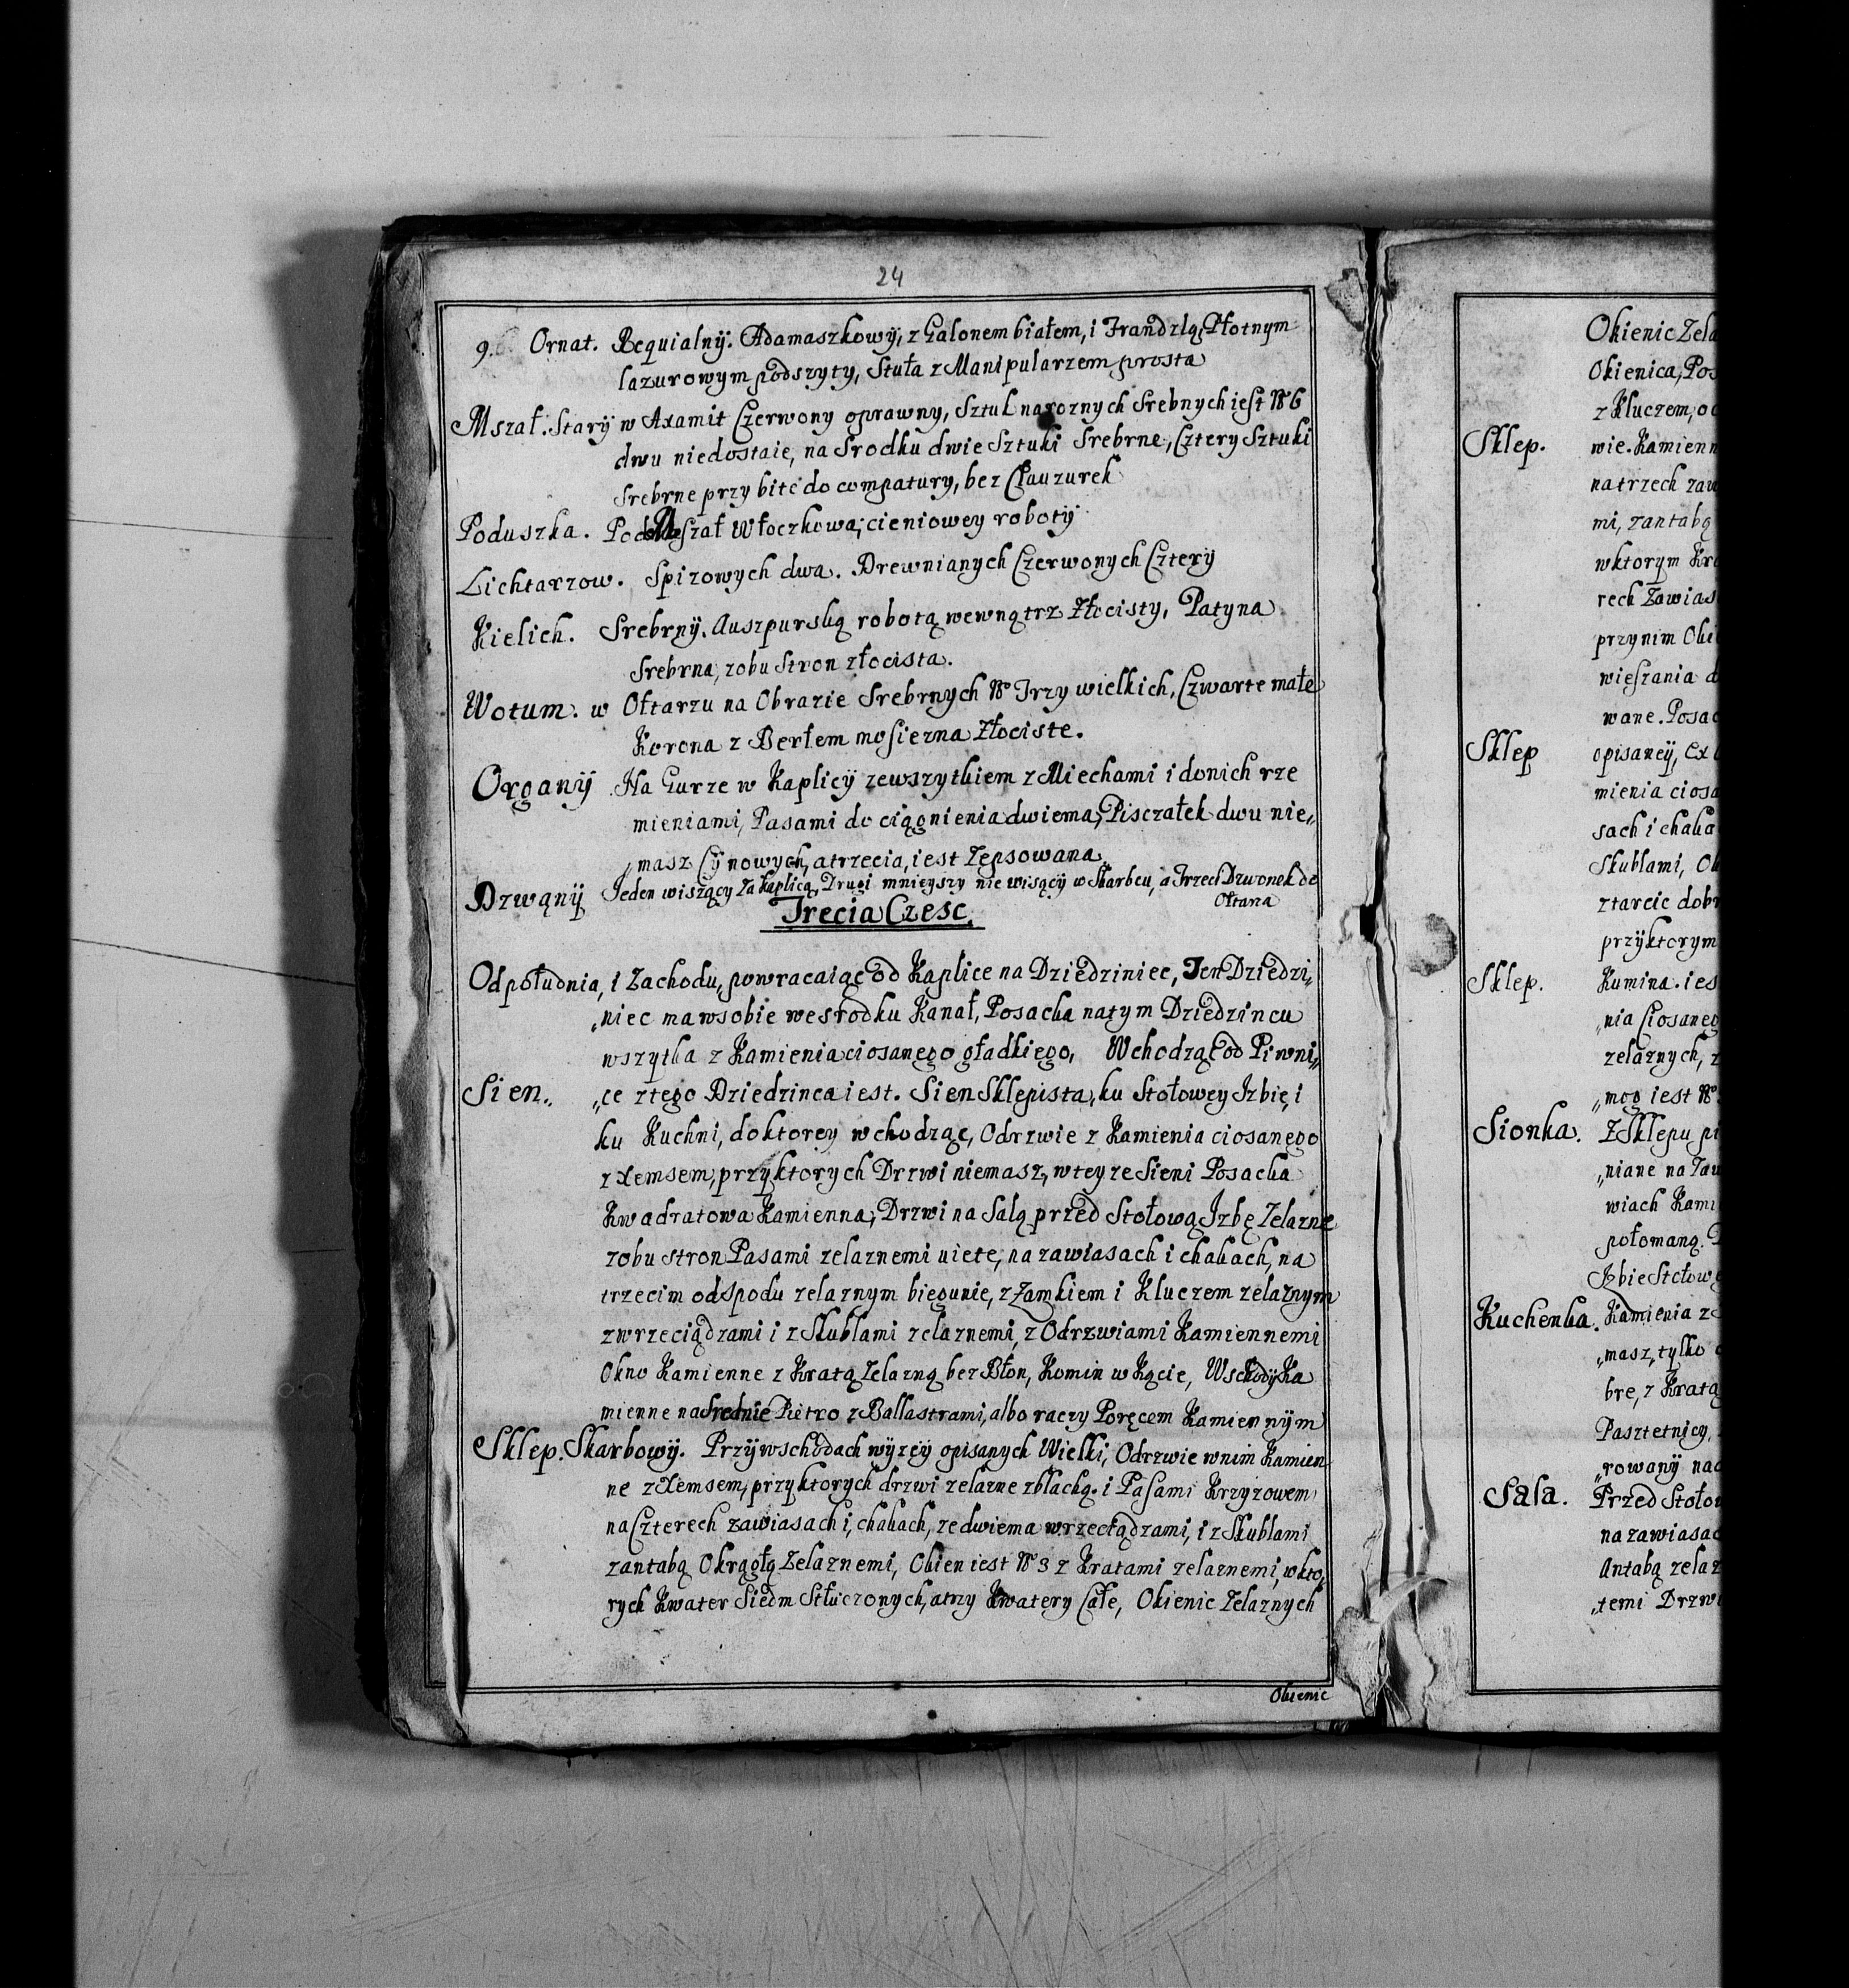 24
9. Ornat. Requialnÿ. Adamaszkowy, z Galonem białem, i Frandzlą, Płotnym
lazurowym podszyty, Stuła z Manipularzem prosta
Mszał. Starÿ w Axamit Czerwony oprawny, Sztuk naroznych Srebnych iest No 6
dwu niedostaie, na Srodku dwie Sztuki Srebrne, Cztery Sztuki
Srebrne przybite do compatury, bez Clauzurek
Poduszka. Pod Mszał Włoczkowa, cieniowey robotÿ
Lichtarzow. Spizowych dwa. Drewnianych Czerwonych Cztery
Kielich. Srebrnÿ. Auszpurską robotą wewnątrz złocisty, Patyna
Srebrna, z obu Stron złocista.
Wotum. w Ołtarzu na Obrazie Srebrnych No Trzy wielkich, Czwarte małe
Korona z Berłem mosiezna złociste.
Organÿ. Na Gurze w Kaplicÿ zewszytkiem z Miechami i do nich rze
mieniami, Pasami do ciągnienia dwiema, Pisczałek dwu nie„
„masz Cÿnowych, a trzecia, iest Zepsowana.
Dzwąnÿ Jeden wiszący za Kaplicą, Drugi mnieyszy nie wisącÿ w Skarbcu, a Trzeci Dzwonek do
Ołtarza
Trecia Czesc.
Od południa, i Zachodu, powracaiąc od Kaplice na Dziedziniec, Ten Dziedzi„
„niec ma w sobie we srodku Kanał, Posacka na tym Dziedzincu
wszytka z Kamienia ciosanego gładkiego, Wchodząc od Piwni„
Sien. „ce z tego Dziedzinca iest. Sien Sklepista, ku Stołowey Izbie, i
ku Kuchni, do ktorey wchodząc, Odrzwie z Kamienia ciosanego
z xemsem, przy ktorych Drzwi niemasz, w teyze Sieni Posacka
Kwadratowa Kamienna, Drzwi na Salą przed Stołową Izbę Zelazne
z obu stron Pasami zelaznemi uiete, na zawiasach i chakach, na
trzecim od spodu zelaznym biegunie, z Zamkiem i Kluczem zelaznym
z wrzeciądzami i z Skublami zelaznemi, z Odrzwiami Kamiennemi
Okno Kamienne z Kratą Zelazną bez Błon, Komin w Kącie, Wschodÿ Ka
mienne na Srednie Pietro z Ballastrami, albo raczy Poręcem Kamiennÿm
Sklep. Skarbowÿ. Przÿ wschodach wÿzeÿ opisanych Wielki, Odrzwie w nim Kamien
ne z xemsem, przy ktorych drzwi zelazne z blachą. i Pasami Krzyzowem
na Czterech zawiasach i, chakach, ze dwiema wrzeciądzami, i z Skublami
z antabą Okrągłą Zelaznemi, Okien iest No 3 z Kratami zelaznemi, w kto„
rych Kwater Siedm Stłuczonych, a trzy Kwatery Całe, Okienic Zelaznych
Okienic
Okienic Zela
Okienica, Pos
z Kluczem, o
Sklep. wie. Kamienn
na trzech zaw
mi, z antabą
w ktorym Kra
rech Zawias
przy nim Oki
wieszania d
wane. Posac
Sklep opisaneÿ, Ex
mienia ciosa
sach i chaka
Skublami, Ok
z tarcic dobr
przÿ ktorym
Sklep. Kumina. ies
„nia Ciosaneg
zelaznych, z
„mog iest No
Sionka. Z Sklepu pi
„niane na Zaw
wiach Kami
połomaną.
Izbie Stołow
Kuchenka. Kamienia z
„masz, tylko
bre, z Kratą
Pasztetnicy,
„rowanÿ na
Sala. Przed Stołow
na zawiasac
Antabą zelaz
„temi Drzwi